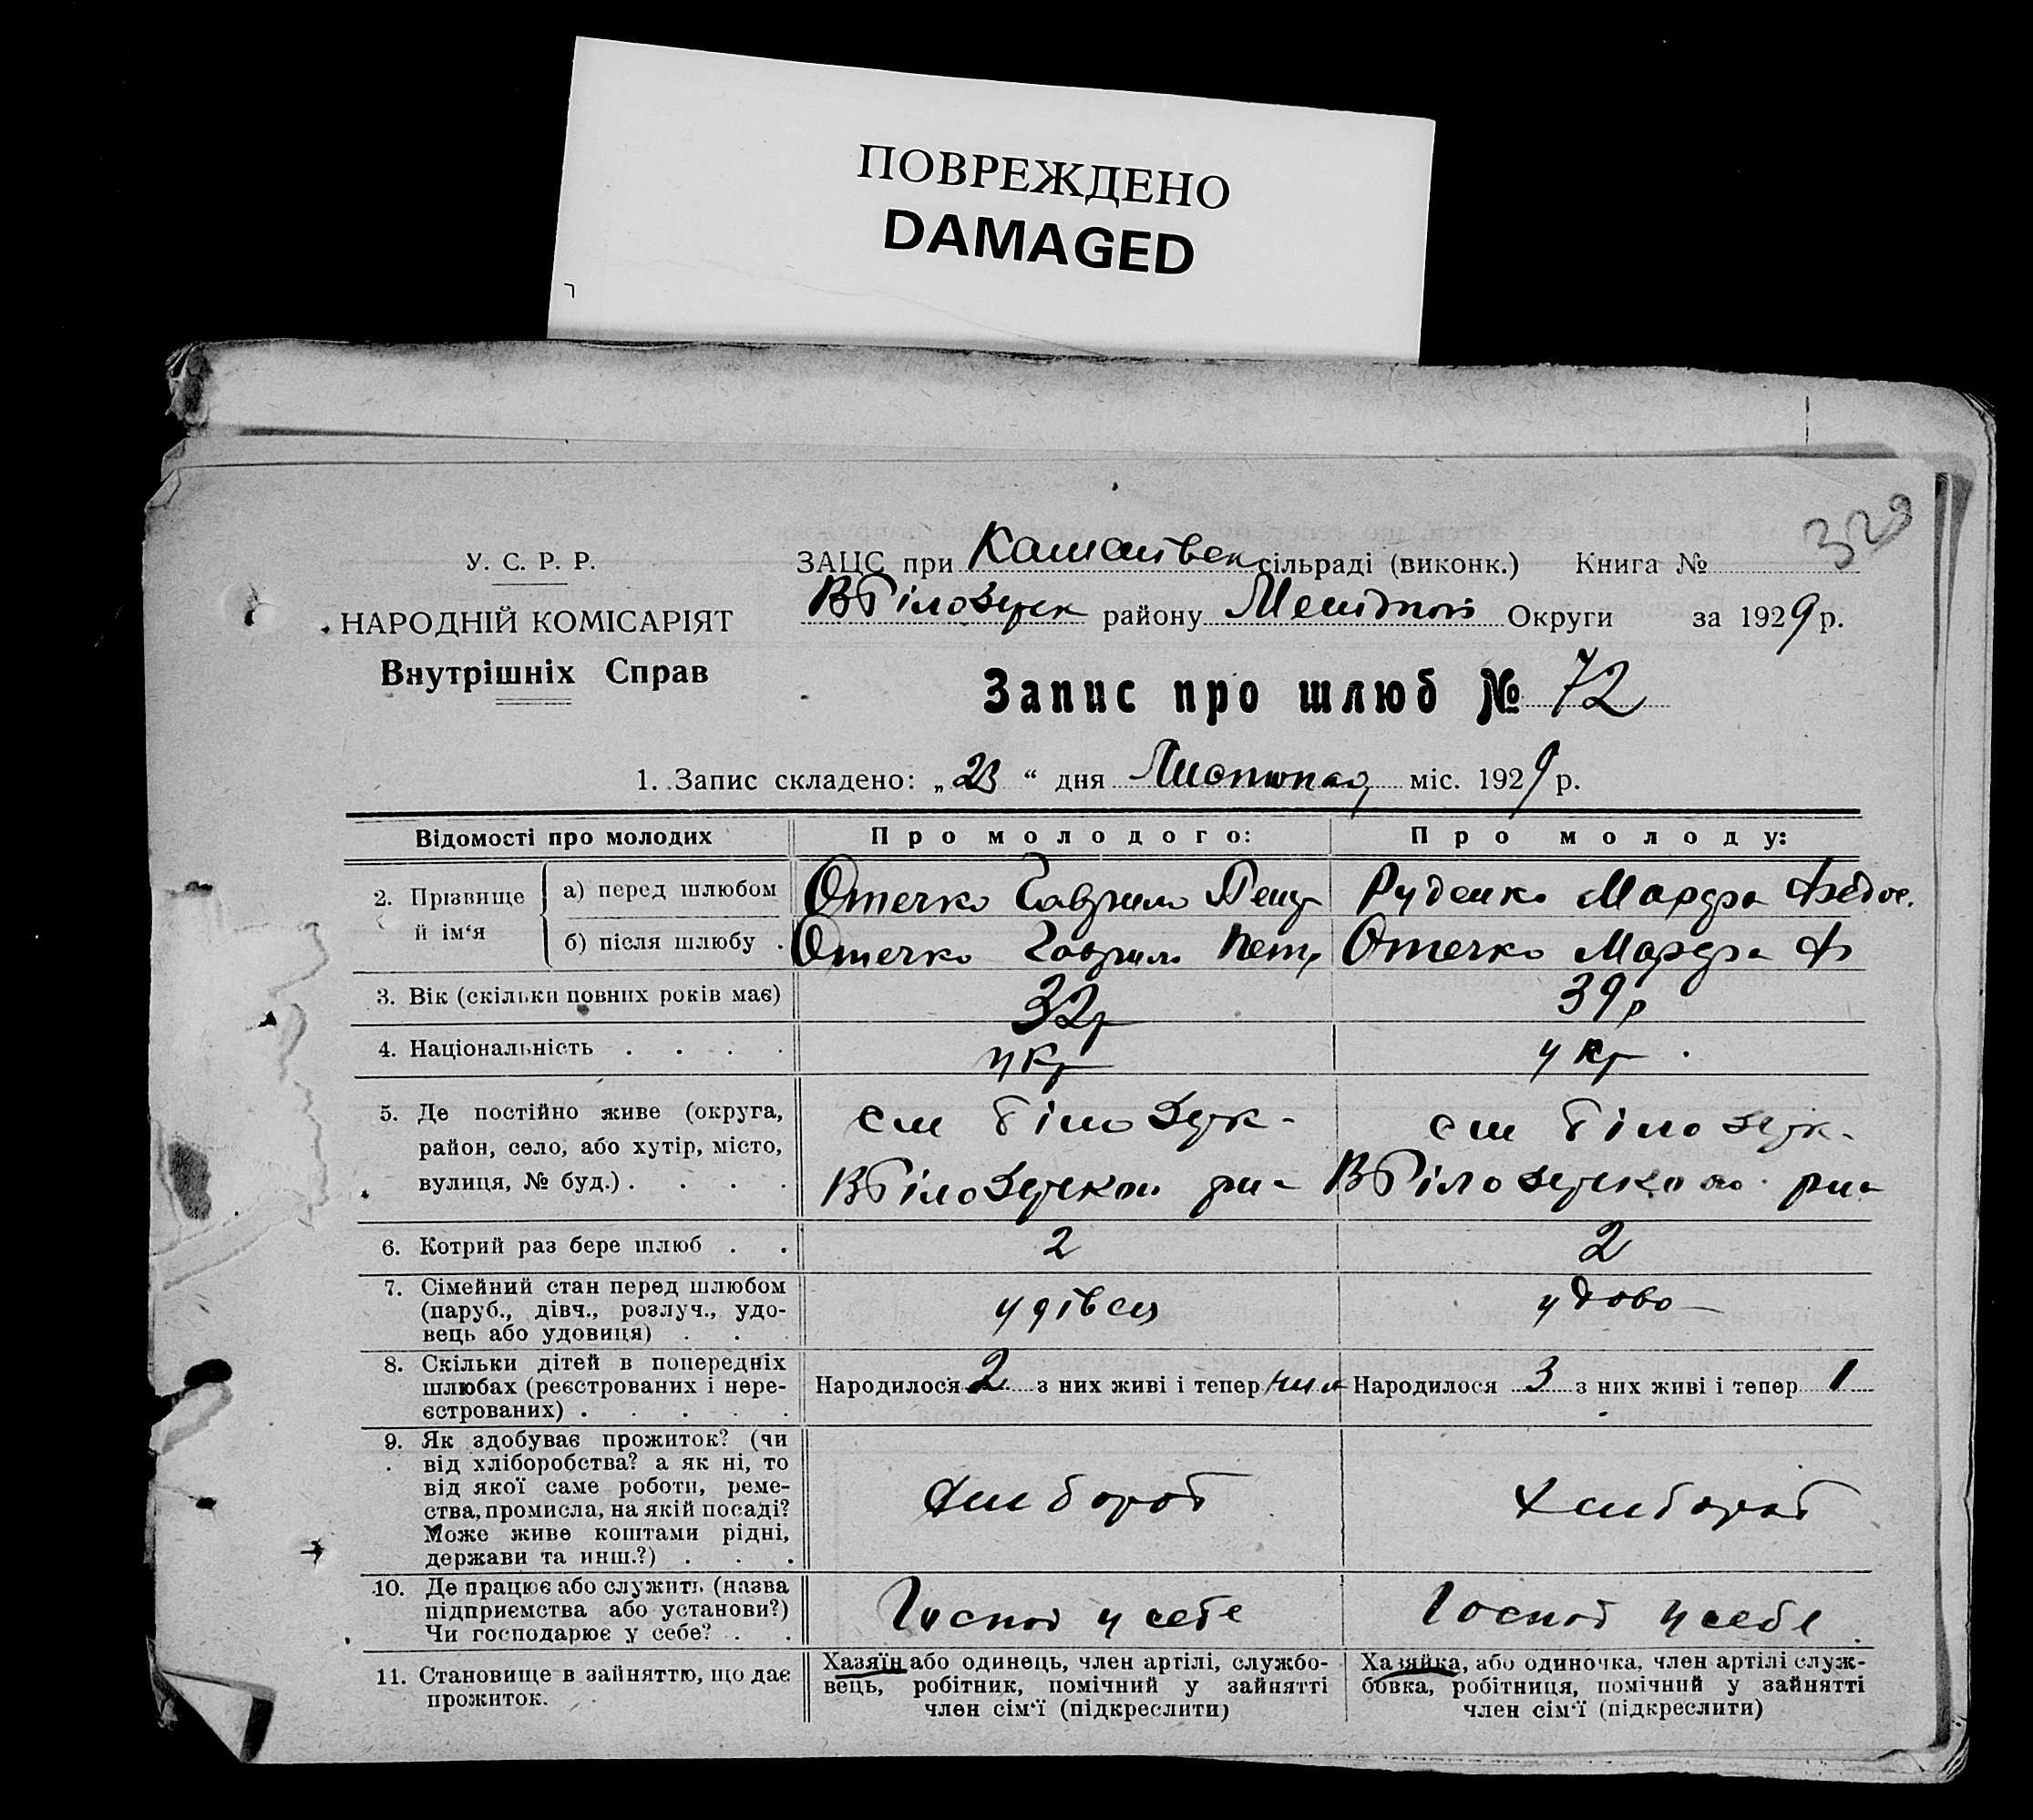 ПОВРЕЖДЕНО
DAMAGED
329
У. С. Р. Р.
НАРОДНІЙ КОМІСАРІЯТ
Внутрішніх Справ
ЗАЦС при сільраді (виконк.) Книга №
району Округи за 1929 р.
Запис про шлюб № 72
1. Запис складено: „23“ дня Листопад міс. 1929 р.
Відомості про молодих Про молодого: Про молоду:
2. Прізвище й ім‘я
а) перед шлюбом Отечко Гаврило Петр Руденко Марфа Федос.
б) після шлюбу . Отечко Гаврило Петр Отечко Марфа Ф
3. Вік (скільки повних років має) 32р 39р
4. Національність . . . . укр укр .
5. Де постійно живе (округа,
район, село, або хутір, місто,
вулиця, № буд.) . . . .
6. Котрий раз бере шлюб . . 2 2
7. Сімейний стан перед шлюбом
(паруб., дівч., розлуч., удо-
вець або удовиця) . . . удівец удова
8. Скільки дітей в попередніх
шлюбах (реєстрованих і нере-
єстрованих) . . . . .
Народилося 2 з них живі і тепер Народилося 3 з них живі і тепер 1
9. Як здобуває прожиток? (чи
від хліборобства? а як ні, то
від якої саме роботи, реме-
ства, промисла, на якій посаді?
Може живе коштами рідні,
держави та инш.?) . . . хлибороб хлибороб
10. Де працює або служить (назва
підприємства або установи?)
Чи господарює у себе? . . Господ у себе Господ у себе
11. Становище в зайняттю, що дає
прожиток.
Хазяїн або одинець, член артілі, службо-
вець, робітник, помічний у зайнятті
член сім‘ї (підкреслити)
Хазяйка, або одиночка, член артілі служ-
бовка, робітниця, помічний у зайнятті
член сім‘ї (підкреслити)